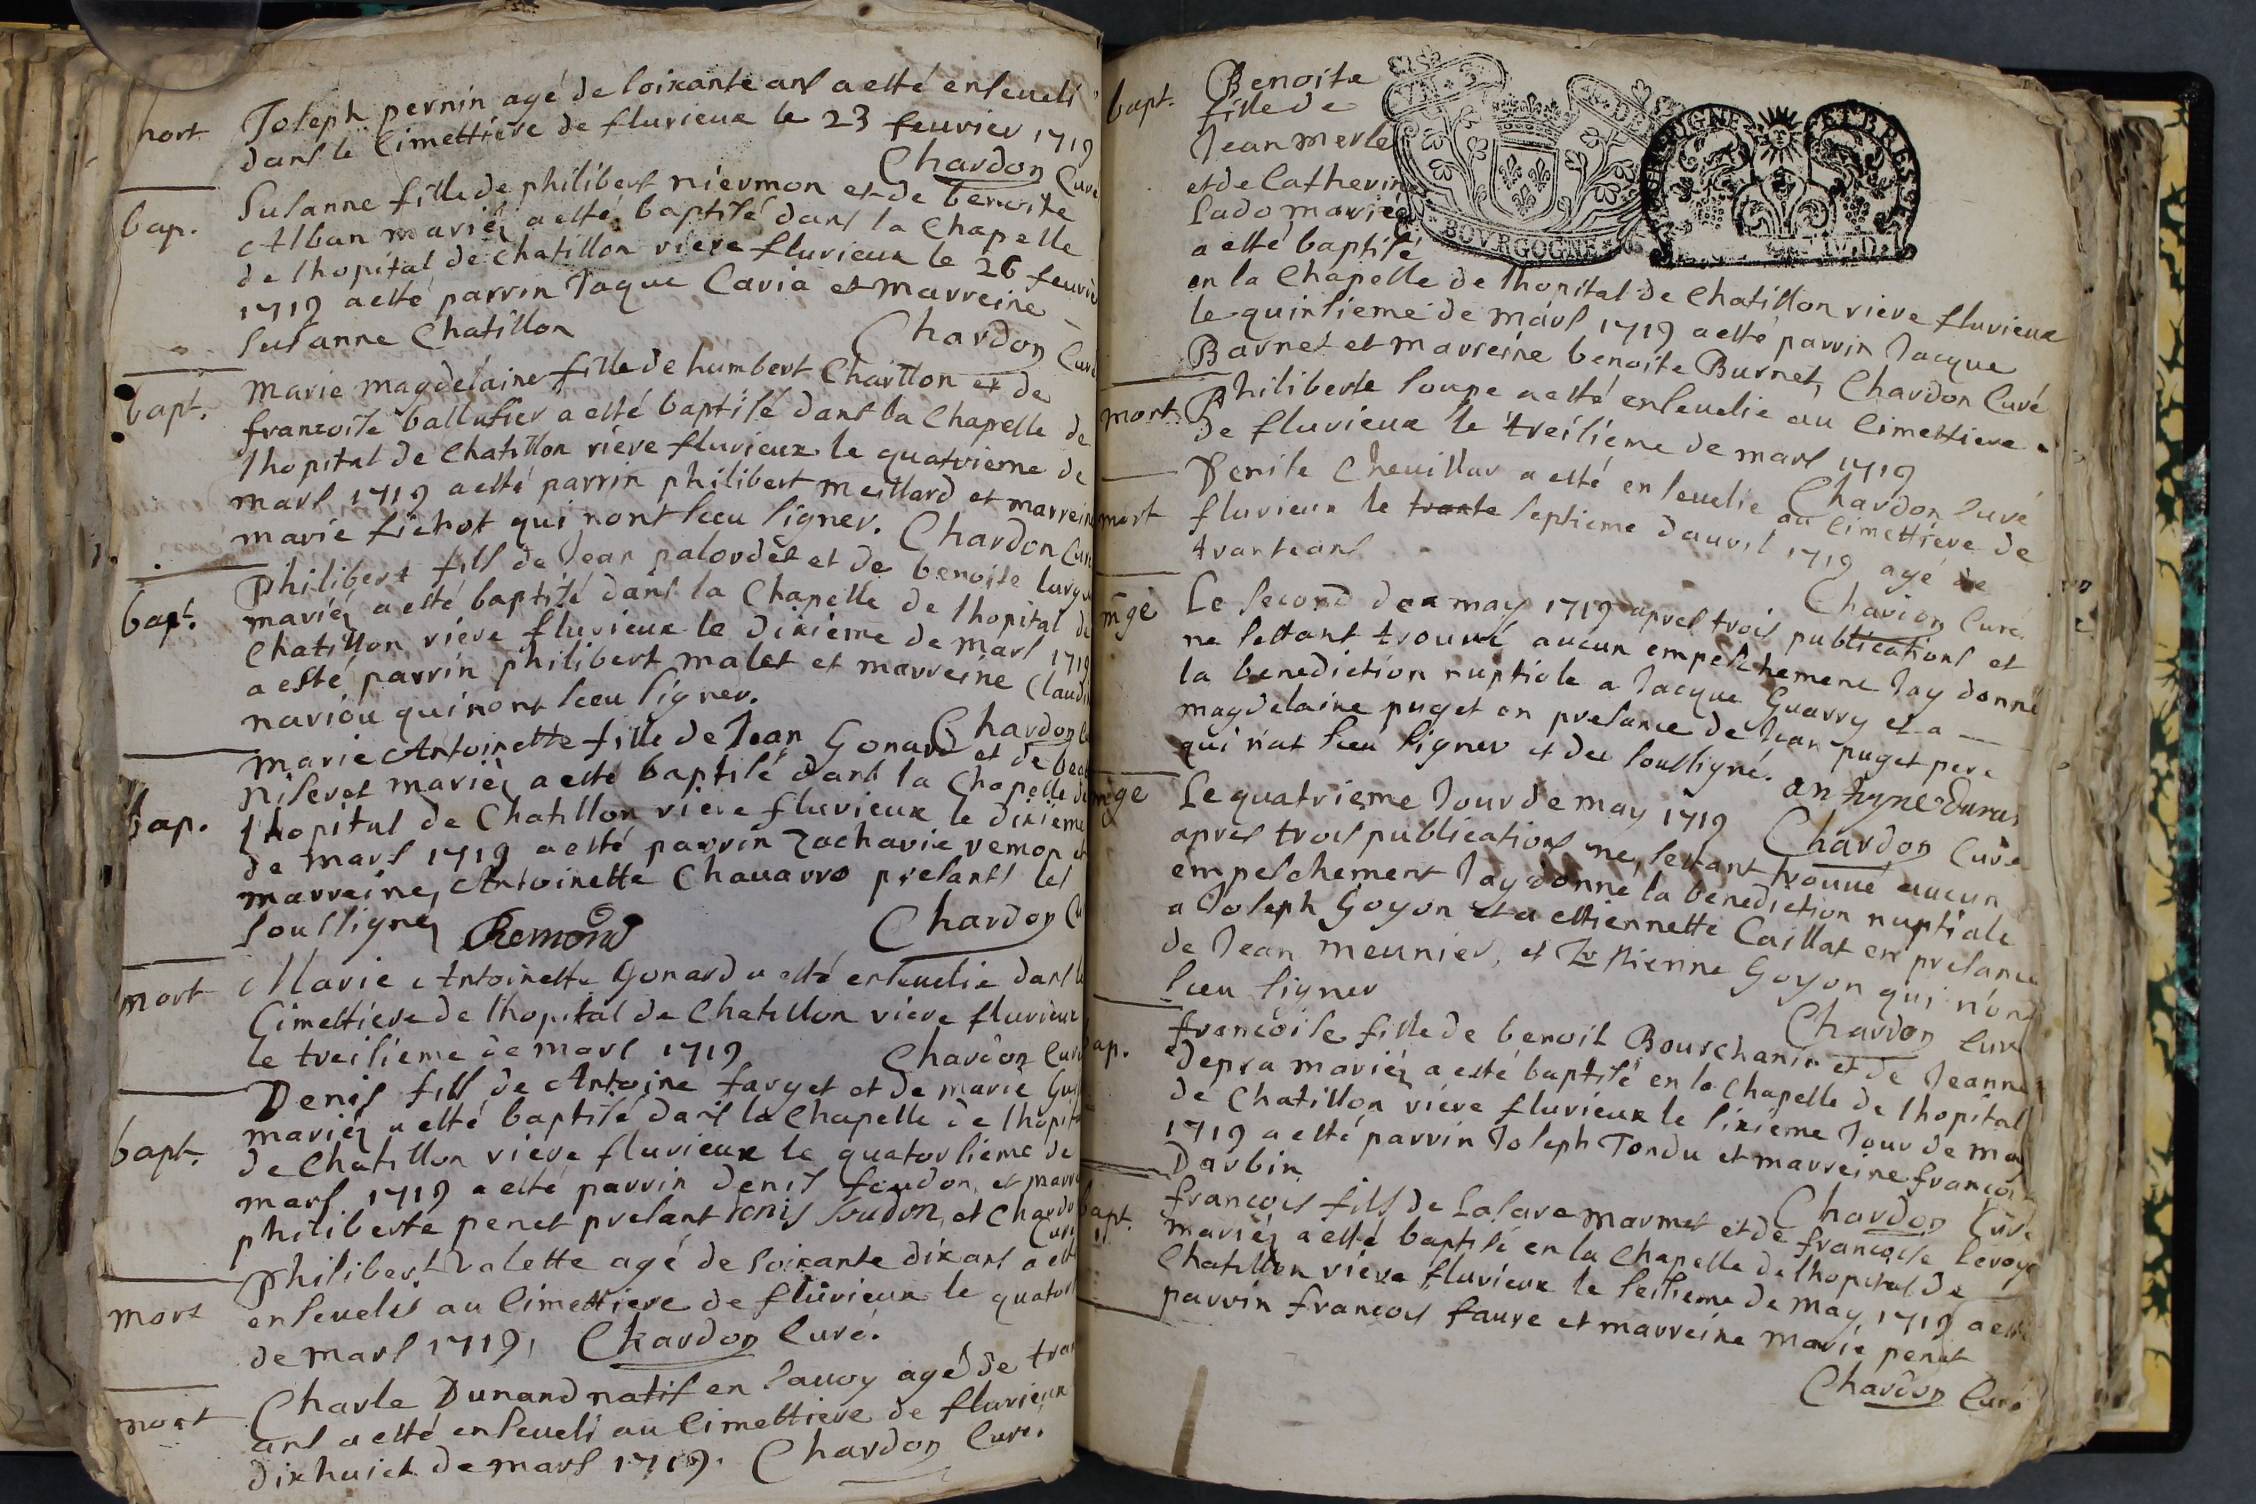 mort
Joseph pernin agé de soixante ans a esté enseueli
dans le Cimettiere de fluvieux le 23 feuvier 1719
Chardon Curé
bap.
Susanne fille de philibert niermon et de benoite
Alban mariéz a esté baptisé dans la Chapelle
de lhopital de Chatillon riere fluvieux le 26 feuvrie
1719 a esté parrin Jaque Cavia et marreine
Susanne Chatillon
Chardon Curé
bapt.
Marie magdelaine fille de humbert Chaitton et de
francoise ballufier a esté baptisé dans la Chapelle de
lhopital de Chatillon riere fluvieux le quatrieme de
mars 1719 a esté parrin philibert meillard et marreine
marie fichot qui nont sceu signer. Chardon Curé
bapt.
Philibert fils de Jean palordet et de benoite
mariéz a esté baptisé dans la Chapelle de lhopital de
Chatillon riere fluvieux le dixieme de mars 1719
a esté parrin philibert malet et marreine Claudi
nariou qui nont sceu signer.
Chardon
bap.
Marie Antoinette fille de Jean Gonard et de
piseret mariéz a esté baptisé dans la Chapelle de
lhopital de Chatillon riere fluvieux le dixieme
de mars 1719 a esté parrin Zacharie remon et
marreine Antoinette Chauarro presants les
soussignez Remond
Chardon Cu
mort
Marie Antoinette Gonard a esté enseuelie dans le
Cimettiere de lhopital de Chatillon riere fluvieux
le treisieme de mars 1719
Chardon Curé
bapt.
Denis fils de Antoine farget et de marie
mariéz a esté baptisé dans la Chapelle de lhopita
de Chatillon riere fluvieux le quatorsieme de
mars 1719 a esté parrin denis foudon et marre
philiberte penet presant denis foudon et Chardon
Curé
mort
Philibert Valette agé de soixante dix ans a esté
enseuelis au Cimettiere de fluvieux le quators
de mars 1719, Chardon Curé.
mort
Charle Dunand natif en Sauoy agé de tran
ans a esté enseueli au Cimettiere de fluvieux
dixhuict de mars 1719. Chardon Curé.
bapt.
Benoite
fille de
Jean merle
et de Catherine
Lado mariéz
a esté baptisé
BOVRGOGNE
ET BRESSE
en la Chapelle de lhopital de Chatillon riere fluvieux
le quinsieme de mars 1719 a esté parrin Jacque
Barnet et marreine benoite Burnet, Chardon Curé
mort.
Philiberte soupe a esté enseuelie au Cimettiere
de fluvieux le treisieme de mars 1719
Chardon Curé
mort
Denise Cheuillar a esté enseuelie au Cimettiere de
fluvieux le trante septieme dauril 1719 agé de
trante ans
Chardon Curé.
mgé
Le second de may 1719 apres trois publications et
ne settant trouué aucun empeschement Jay donné
la benediction nuptiale a Jacque Guarry et a
magdelaine puget en presance de Jean puget pere
qui nat sceu signer et des soussigné. antoyne Duras
Chardon Curé
mgé
Le quatrieme Jour de may 1719
apres trois publications ne settant trouué aucun
empeschement Jay donné la benediction nuptiale
a Joseph Goyon et a ettiennette Caillat en presance
de Jean meunier, et Estienne Goyon qui nont
sceu signer
Chardon Curé
bap.
francoise fille de benoit Bourchanin et de Jeanne
depra mariéz a esté baptisé en la Chapelle de lhopital
de Chatillon riere fluvieux le sixieme Jour de may
1719 a esté parrin Joseph Tondu et marreine francoi
Darbin
Chardon Curé
bapt.
francois fils de Lasare marmet et de francoise
mariéz a esté baptisé en la Chapelle de lhopital de
Chatillon riere fluvieux le seisieme de may 1719 a esté
parrin francois faure et marreine marie penet
Chardon Curé